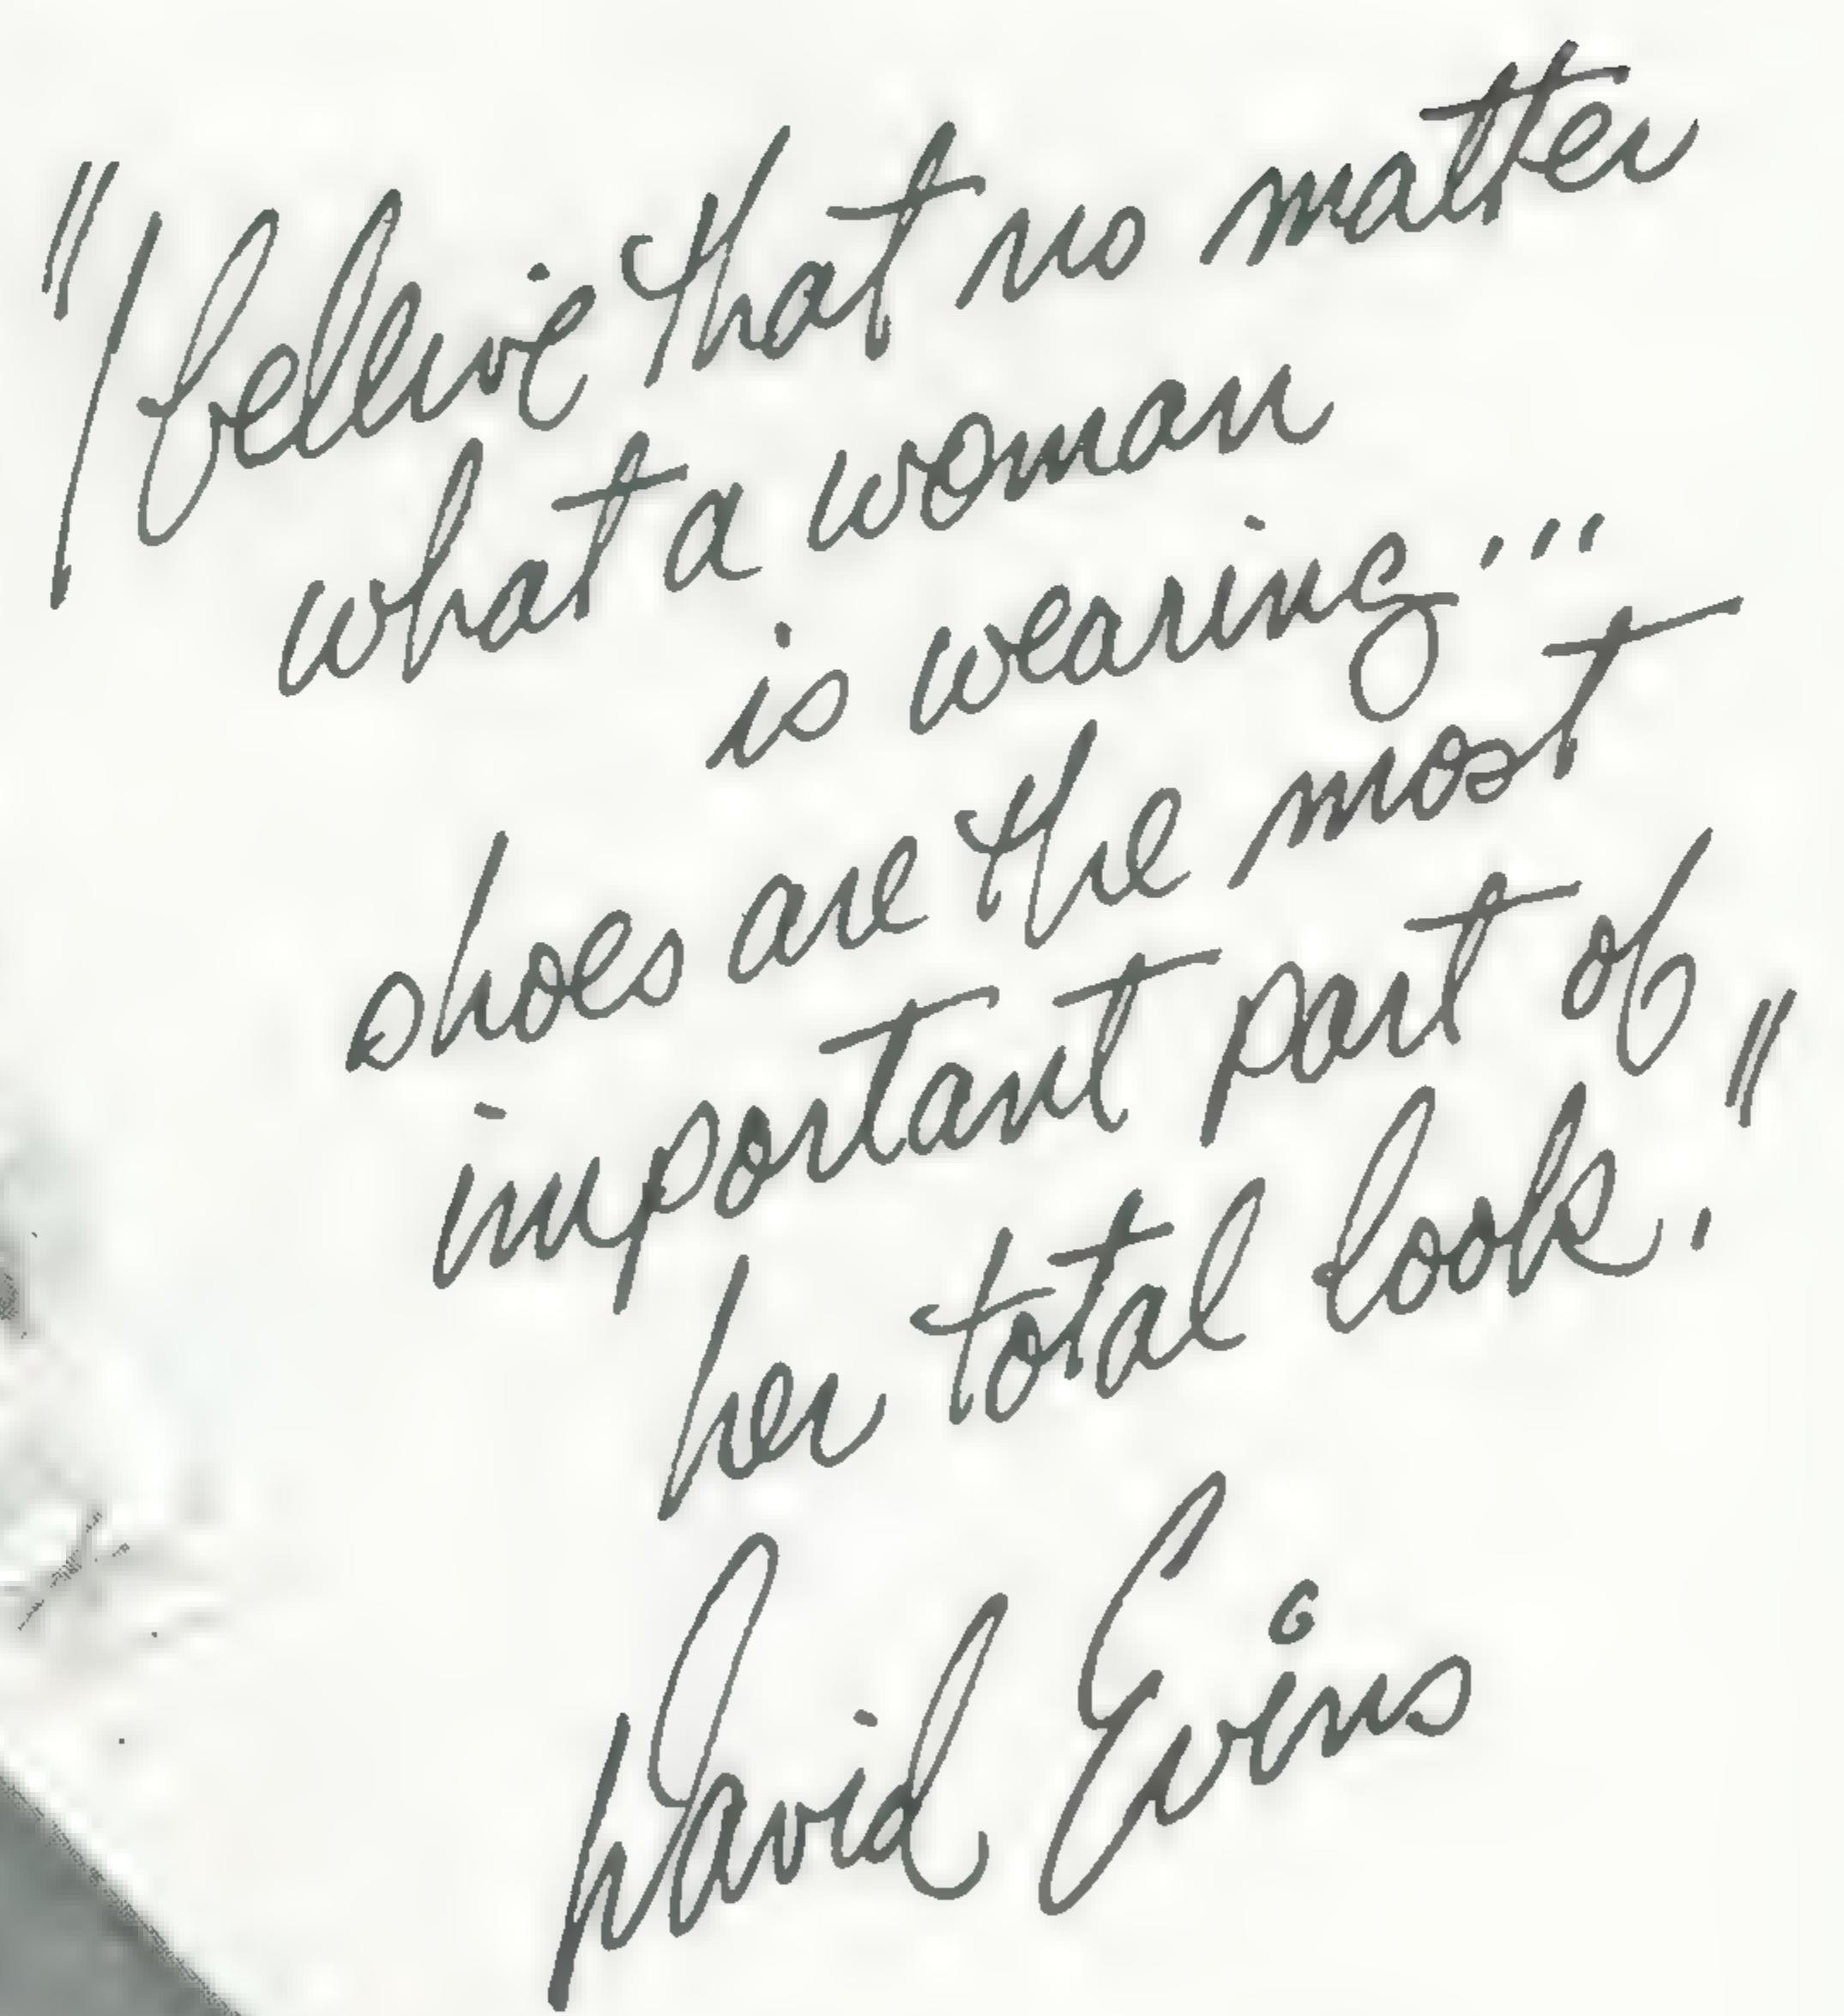 "I believe that no matter
what a woman
is wearing...
shoes are the most
important part of
her total look."
David Evins